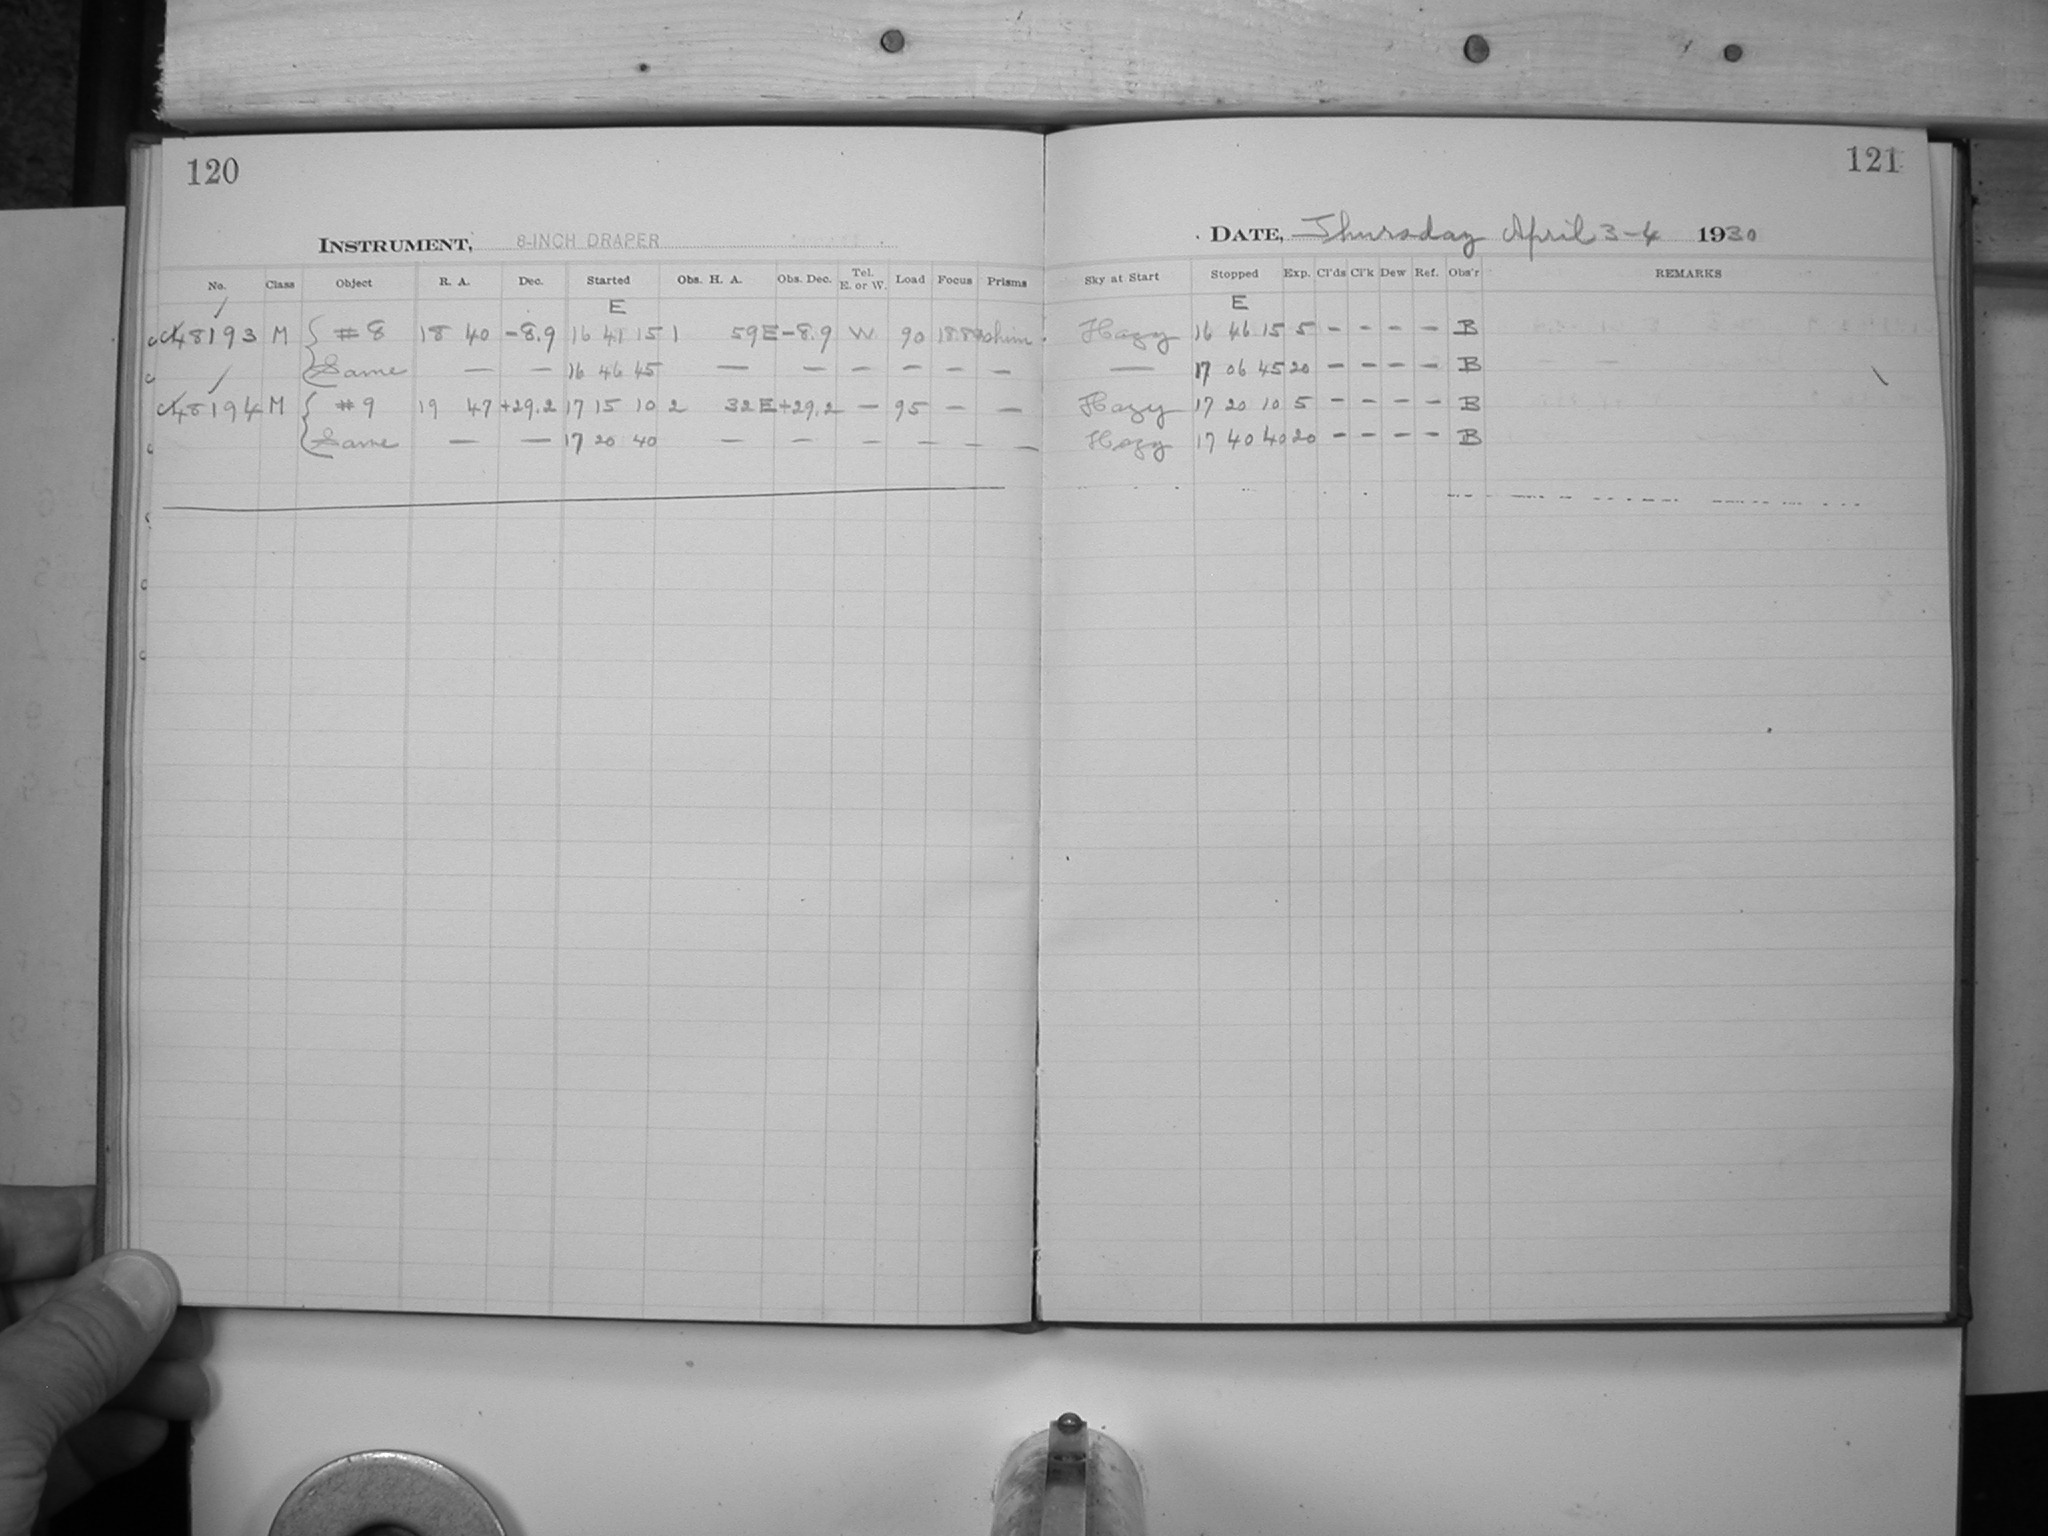 120
INSTRUMENT, 8-INCH DRAPER
No. Class Object R. A. Dec. Started Obs. H. A. Obs. Dec. Tel. E. or W. Load Focus Prisms
E
48193 M { # 8 18 40 -8.9 16 41 15 1 59E -8.9 W. 90
Same — — 16 46 45 — — — — — —
48194 M { # 9 19 47 +29.2 17 15 10 2 32E +29.2 — 95 — —
Same — — 17 20 40 — — — — — —
121
DATE, Thursday April 3-4 1930
Sky at Start Stopped Exp. Cl'ds Cl'k Dew Ref. Obs'r REMARKS
E
Hazy 16 46 15 5 - - - - B
— 17 06 45 20 - - - - B
Hazy 17 20 10 5 - - - - B
Hazy 17 40 40 20 - - - - B